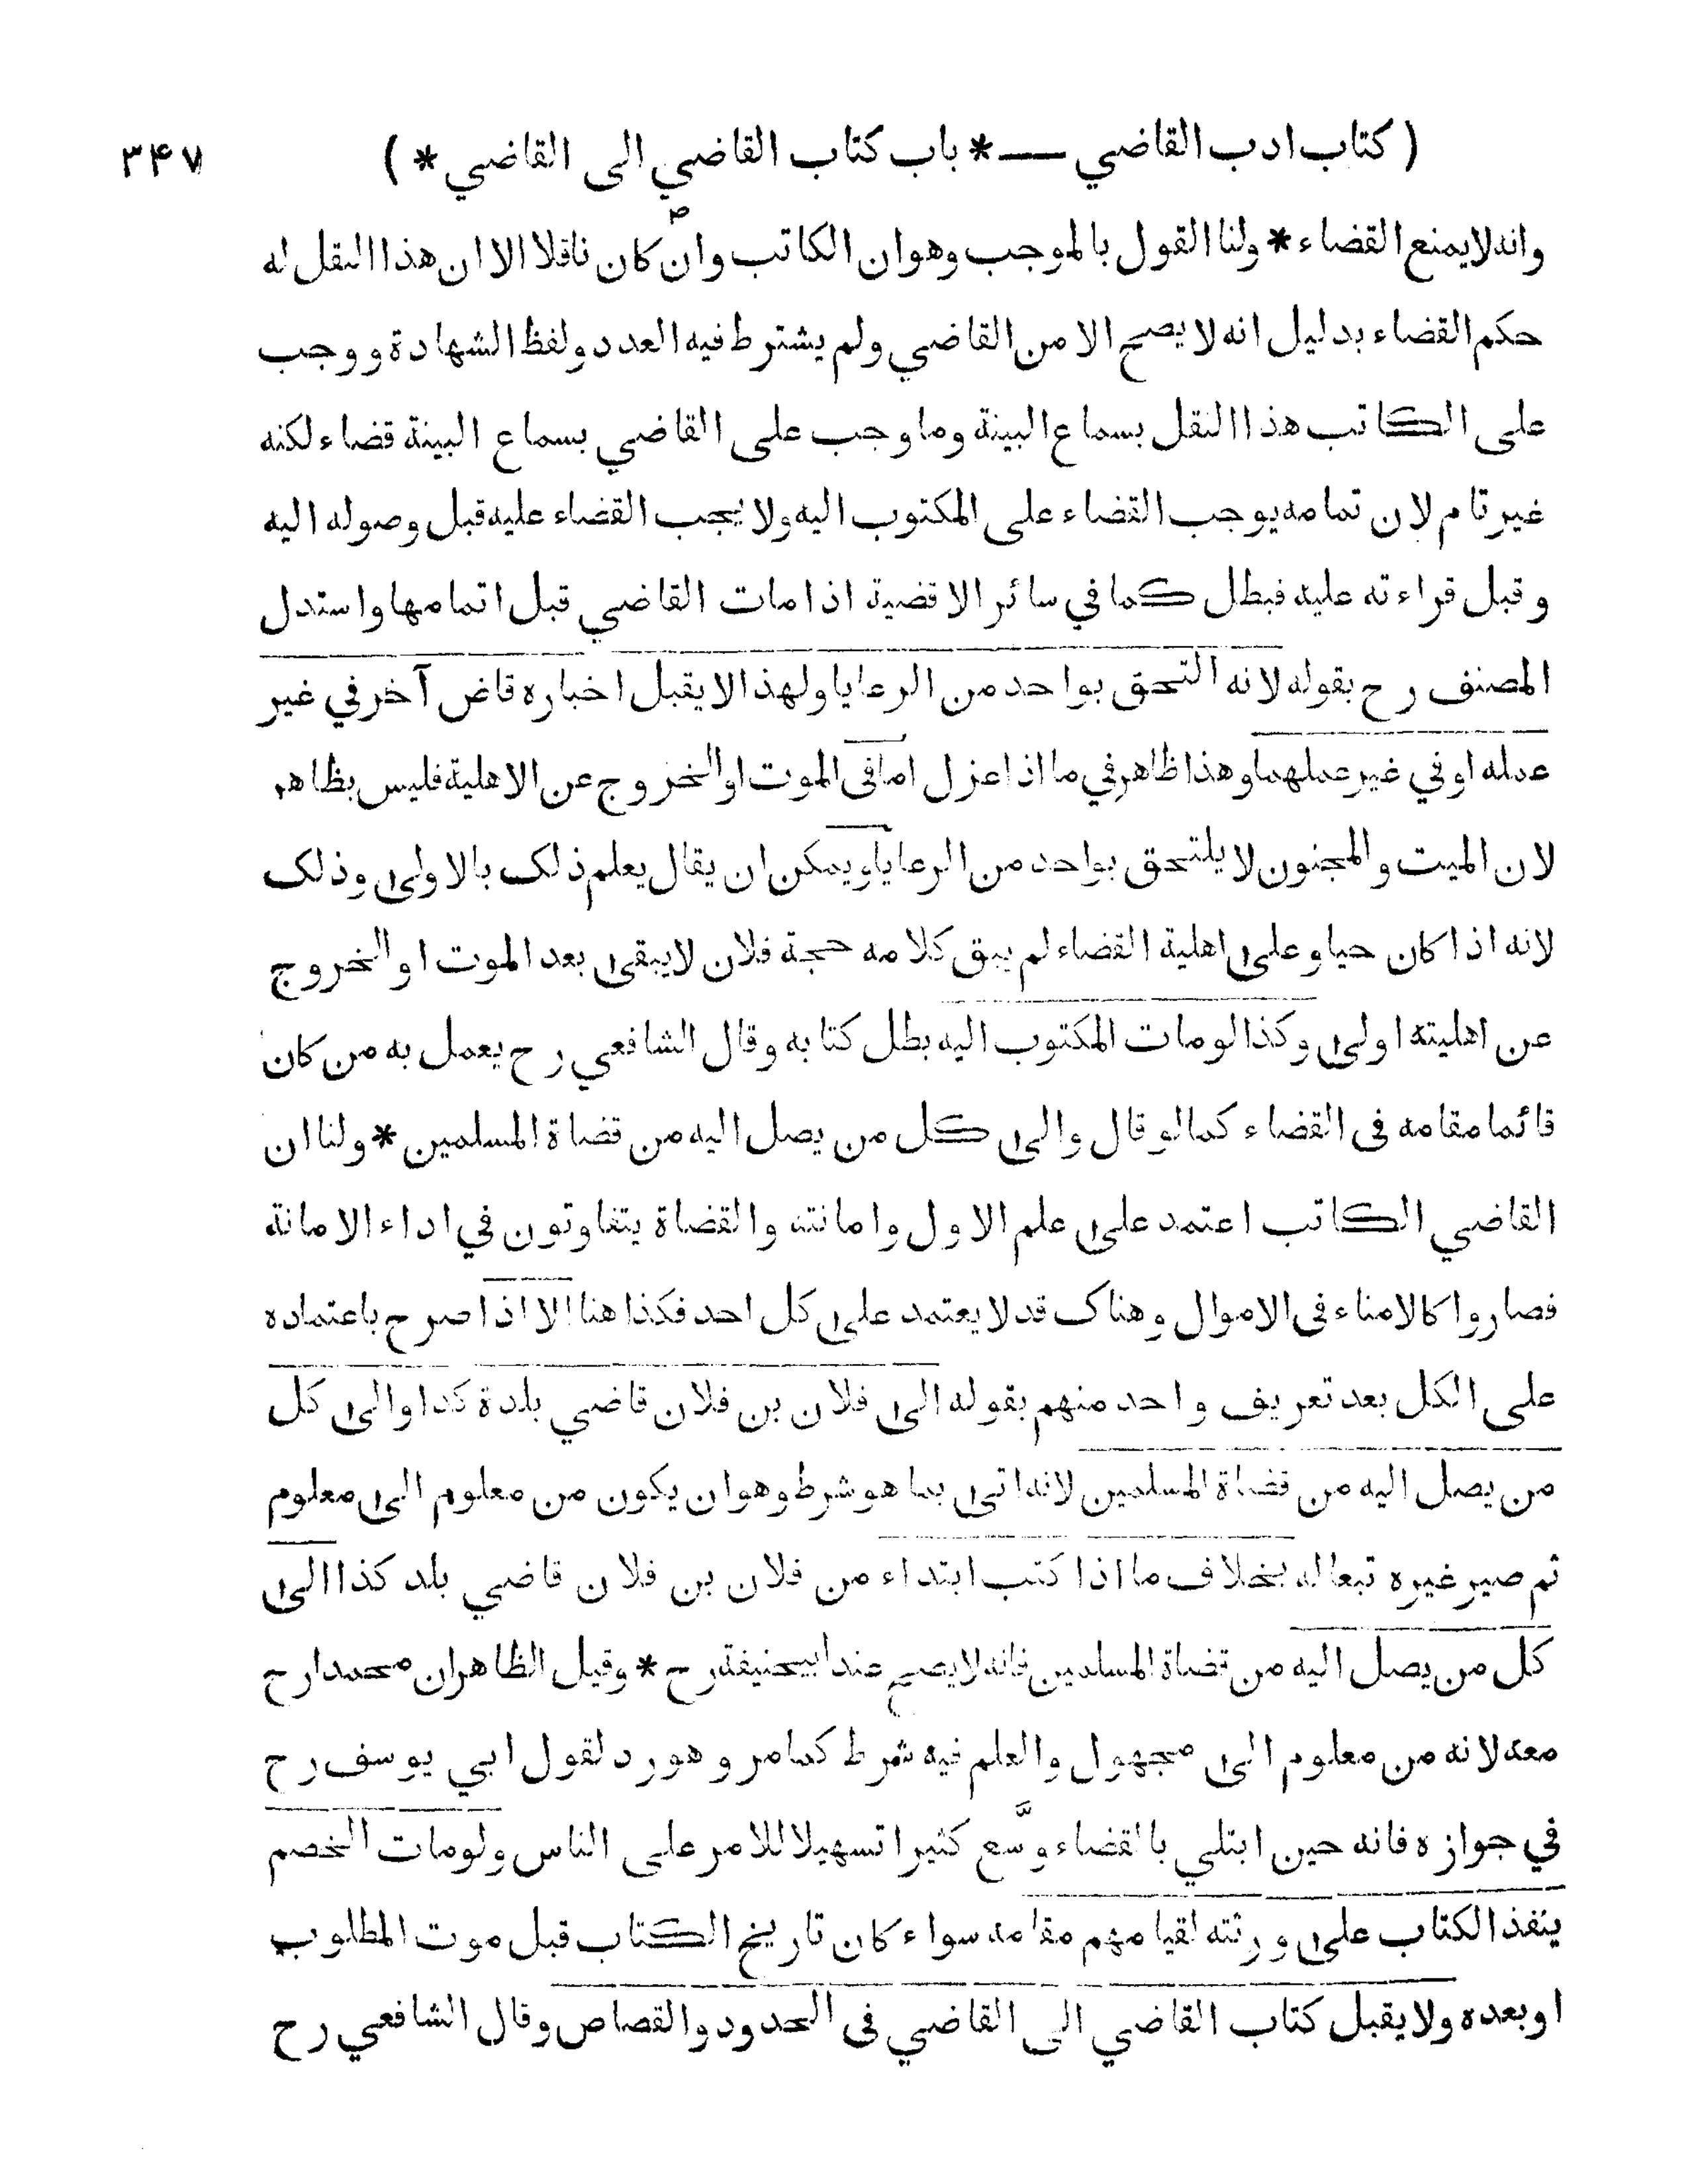 ( كتاب ادب القاضي — * باب كتاب القاضي الى القاضي * ) ٣٤٧
وانه لا يمنع القضاء * ولنا القول بالموجب وهو ان الكاتب وان كان ناقلا الا ان هذا النقل له
حكم القضاء بدليل انه لا يصح الا من القاضي ولم يشترط فيه العدد ولفظ الشهادة ووجب
على الكاتب هذا النقل بسماع البينة وما وجب على القاضي بسماع البينة قضاء لكنه
غير تام لان تمامه يوجب القضاء على المكتوب اليه ولا يجب القضاء عليه قبل وصوله اليه
وقبل قراءته عليه فبطل كما في سائر الاقضية اذا مات القاضي قبل اتمامها واستدل
المصنف رح بقوله لانه التحق بواحد من الرعايا ولهذا لا يقبل اخباره قاض آخر في غير
عمله او في غير عملهما وهذا ظاهر في ما اذا عزل اما فى الموت او الخروج عن الاهلية فليس بظاهر
لان الميت والمجنون لا يلتحق بواحد من الرعايا ويمكن ان يقال يعلم ذلك بالاولى وذلك
لانه اذا كان حيا وعلى اهلية القضاء لم يبق كلامه حجة فلان لا يبقى بعد الموت او الخروج
عن اهليته اولى وكذا لو مات المكتوب اليه بطل كتابه وقال الشافعي رح يعمل به من كان
قائما مقامه فى القضاء كما لو قال والى كل من يصل اليه من قضاة المسلمين * ولنا ان
القاضي الكاتب اعتمد على علم الاول وامانته والقضاة يتفاوتون في اداء الامانة
فصاروا كالامناء فى الاموال وهناك قد لا يعتمد على كل احد فكذا هنا الا اذا صرح باعتماده
على الكل بعد تعريف واحد منهم بقوله الى فلان بن فلان قاضي بلدة كذا والى كل
من يصل اليه من قضاة المسلمين لانه اتى بما هو شرط وهو ان يكون من معلوم الى معلوم
ثم صير غيره تبعا له بخلاف ما اذا كتب ابتداء من فلان بن فلان قاضي بلد كذا الى
كل من يصل اليه من قضاة المسلمين فانه لا يصح عند ابيحنيفة رح * وقيل الظاهر ان محمدا رح
معه لانه من معلوم الى مجهول والعلم فيه شرط كما مر وهو رد لقول ابي يوسف رح
في جوازه فانه حين ابتلي بالقضاء وسّع كثيرا تسهيلا للامر على الناس ولو مات الخصم
ينفذ الكتاب على ورثته لقيامهم مقامه سواء كان تاريخ الكتاب قبل موت المطلوب
او بعده ولا يقبل كتاب القاضي الى القاضي فى الحدود والقصاص وقال الشافعي رح